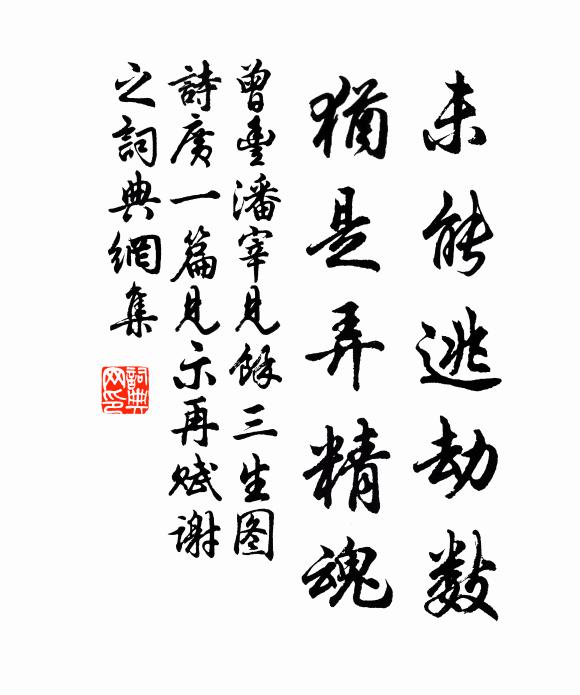 未能逃劫数
猶是弄精魂
曾豐潘宰見餘三生图
詩廣一篇見示再赋謝
之詞典網集
詞典
网印